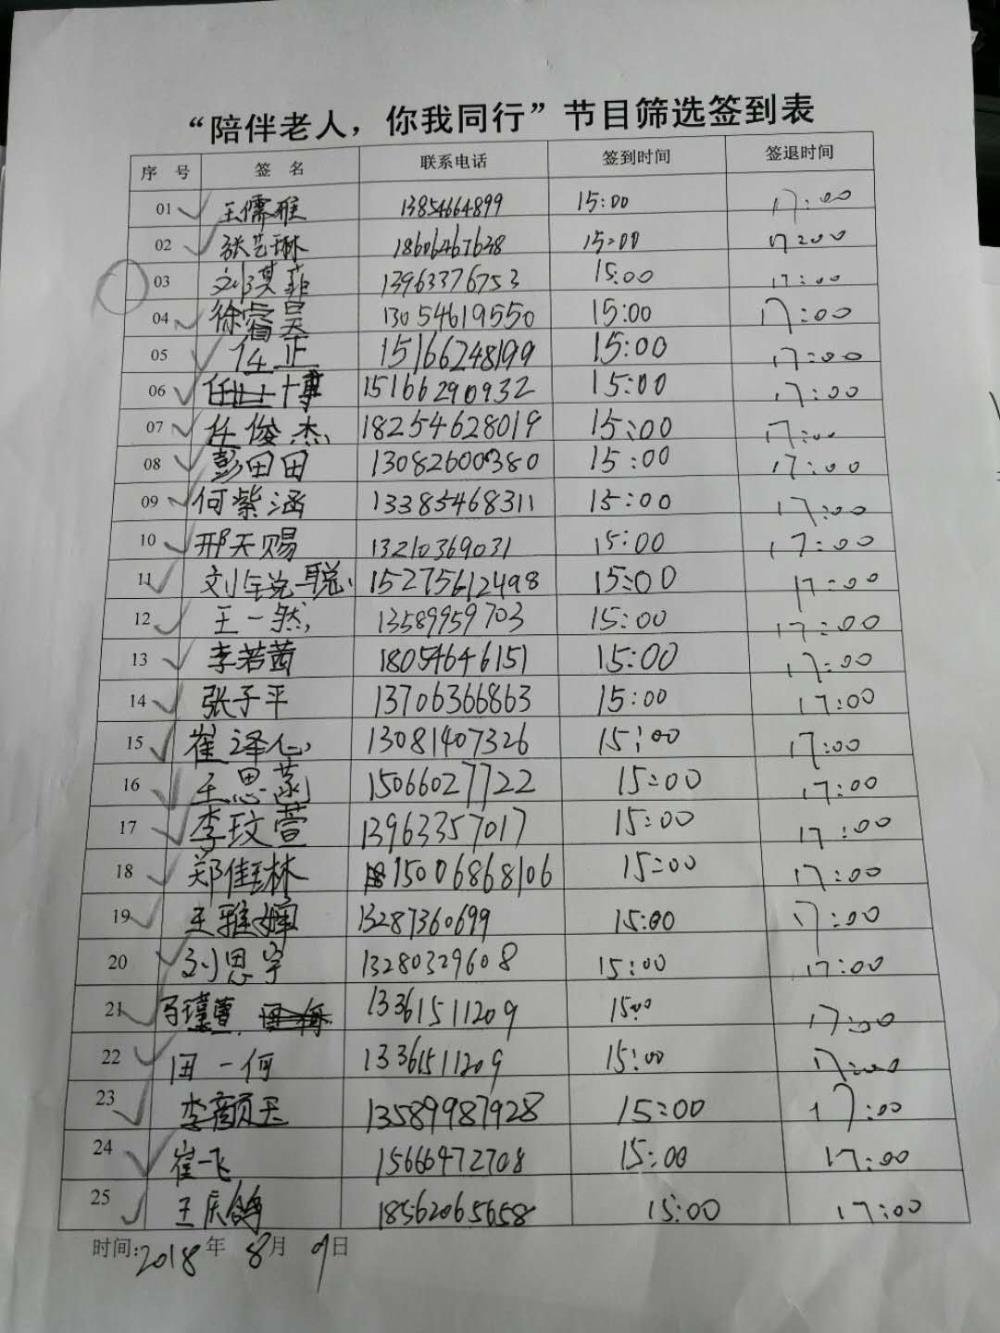 “陪伴老人，你我同行”节目筛选签到表
序 号 签 名 联系电话 签到时间 签退时间
01 王儒雅 13854664899 15:00 17:00
02 张艺琳 18606467638 15:00 17:00
03 刘淇菲 13963376753 15:00 17:00
04 徐睿昊 13054619550 15:00 17:00
05 任正 15166248199 15:00 17:00
06 任博 15166290932 15:00 17:00
07 任俊杰 18254628019 15:00 17:00
08 彭田田 13082600380 15:00 17:00
09 何紫涵 13385468311 15:00 17:00
10 邢天赐 13210369031 15:00 17:00
11 刘 聪 15275612498 15:00 17:00
12 王一然 13589959703 15:00 17:00
13 李若茜 18054646151 15:00 17:00
14 张子平 13706366863 15:00 17:00
15 崔译仁 13081407326 15:00 17:00
16 王思菡 15066027722 15:00 17:00
17 李玟萱 13963357017 15:00 17:00
18 郑佳林 15006868106 15:00 17:00
19 王雅娴 13287360699 15:00 17:00
20 刘思宇 13280329608 15:00 17:00
21 马 13361511209 15:00 17:00
22 田一何 13361511209 15:00 17:00
23 李颜玉 13589987928 15:00 17:00
24 崔一飞 15666472708 15:00 17:00
25 王庆鸽 18562065658 15:00 17:00
时间:2018年 8月 9日